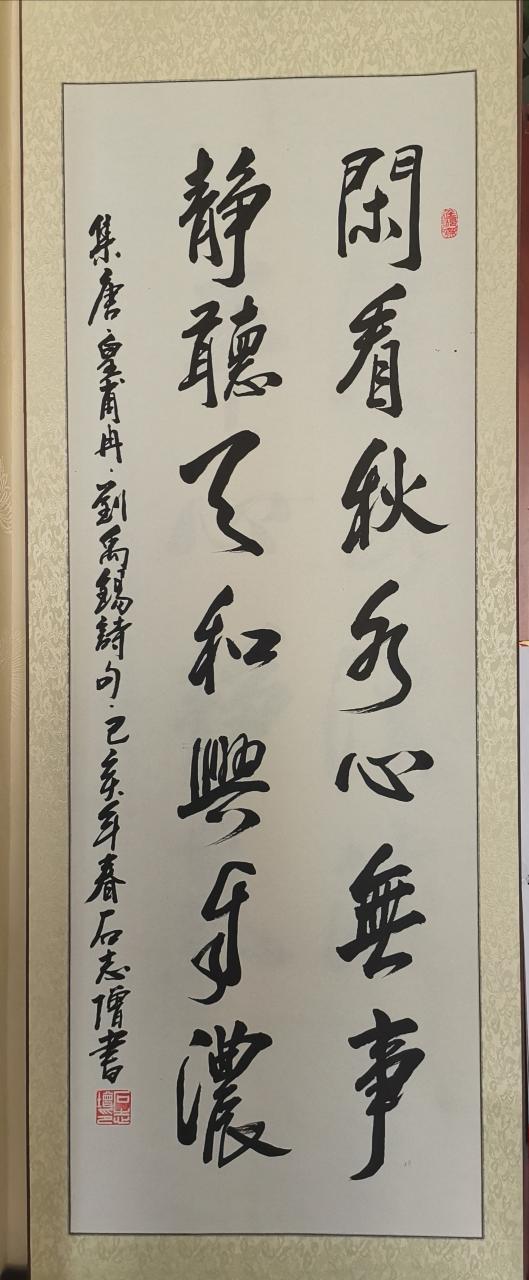 閑看秋水心無事
静聽天和興自濃
集唐皇甫冉劉禹錫詩句己亥年春石志增書
石志增印